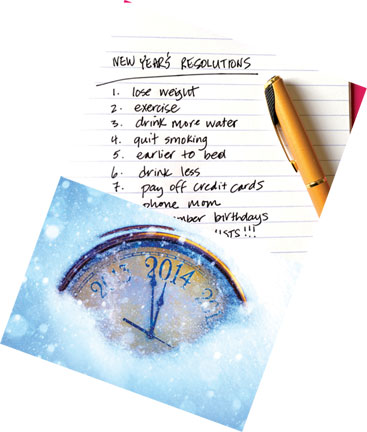 NEW YEAR'S RESOLUTIONS
1. lose weight
2. exercise
3. drink more water
4. quit smoking
5. earlier to bed
6. drink less
7. pay off credit cards
phone mom
birthdays
2013 2014